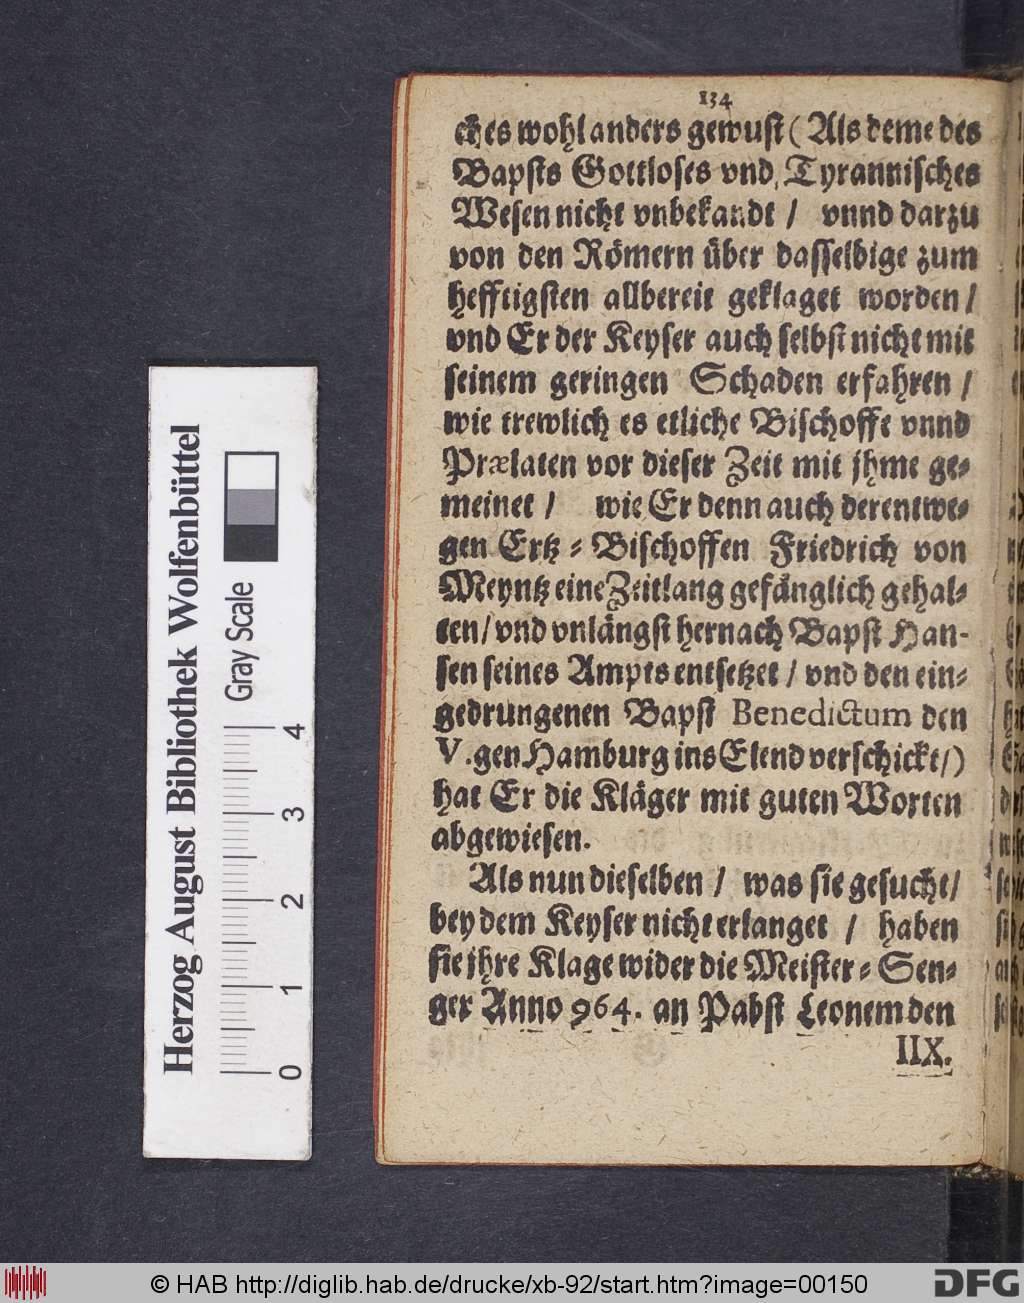 134
ches wohl anders gewust (Als deme des
Bapsts Gottloses vnd Tyrannisches
Wesen nicht vnbekandt / vnnd darzu
von den Römern über dasselbige zum
hefftigsten allbereit geklaget worden /
vnd Er der Keyser auch selbst nicht mit
seinem geringen Schaden erfahren /
wie trewlich es etliche Bischoffe vnnd
Prælaten vor dieser Zeit mit jhme ge-
meinet / wie Er denn auch derentwe-
gen Ertz - Bischoffen Friedrich von
Meyntz eine Zeitlang gefänglich gehal-
ten / vnd vnlängst hernach Bapst Han-
sen seines Ampts entsetzet / vnd den ein-
gedrungenen Bapst Benedictum den
V. gen Hamburg ins Elend verschickt /)
hat Er die Kläger mit guten Worten
abgewiesen.
Als nun dieselben / was sie gesucht /
bey dem Keyser nicht erlanget / haben
sie jhre Klage wider die Meister - Sen-
ger Anno 964. an Pabst Leonem den
IIX.
Herzog August Bibliothek Wolfenbüttel
Gray Scale
0 1 2 3 4
© HAB http://diglib.hab.de/drucke/xb-92/start.htm?image=00150
DFG